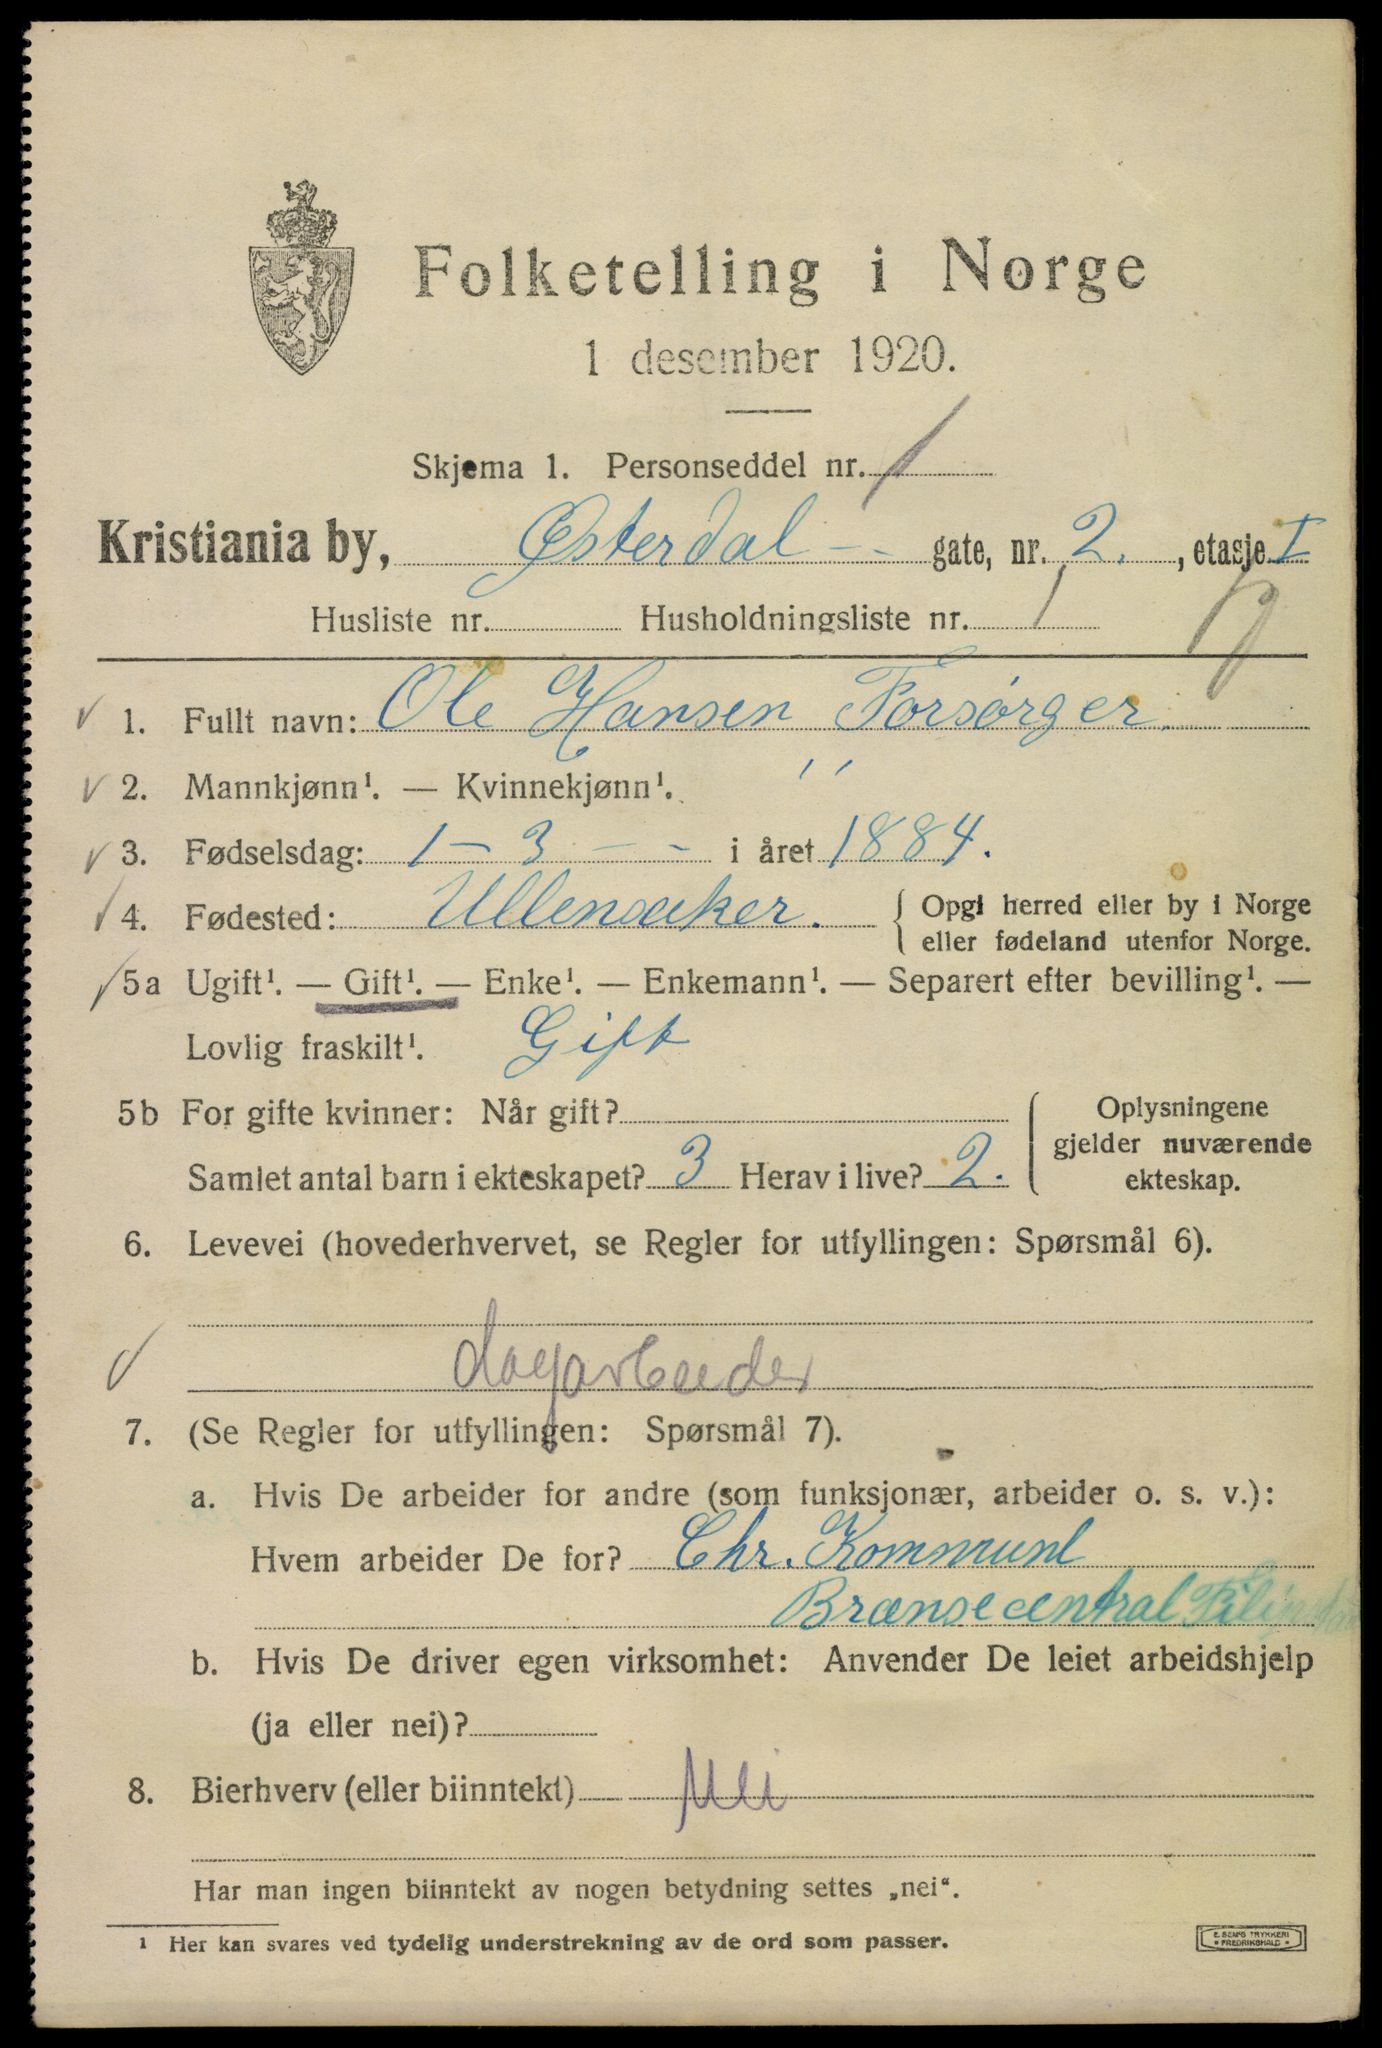 Folketelling i Norge
1 desember 1920.
Skjema 1. Personseddel nr. 1
Kristiania by, Østerdal -- gate, nr. 2. , etasje I
Husliste nr. Husholdningsliste nr. 1
1. Fullt navn: Ole Hansen Forsørger.
2. Mannkjønn¹. — Kvinnekjønn¹.
3. Fødselsdag: 1 - 3 - - i året 1884.
4. Fødested: Ullensaker. { Opgi herred eller by i Norge
eller fødeland utenfor Norge.
5a Ugift¹. — Gift¹. — Enke¹. — Enkemann¹. — Separert efter bevilling¹. —
Lovlig fraskilt¹. Gift
5b For gifte kvinner: Når gift?
Samlet antal barn i ekteskapet? 3 Herav i live? 2.
Oplysningene
gjelder nuværende
ekteskap.
6. Levevei (hovederhvervet, se Regler for utfyllingen: Spørsmål 6).
dagarbeider
7. (Se Regler for utfyllingen: Spørsmål 7).
a. Hvis De arbeider for andre (som funksjonær, arbeider o. s. v.):
Hvem arbeider De for? Chr. Kommunl
Brænsecentral
b. Hvis De driver egen virksomhet: Anvender De leiet arbeidshjelp
(ja eller nei)?
8. Bierhverv (eller biinntekt) Nei
Har man ingen biinntekt av nogen betydning settes „nei“.
¹ Her kan svares ved tydelig understrekning av de ord som passer.
E. SEM'S TRYKKERI
• FREDRIKSHALD •